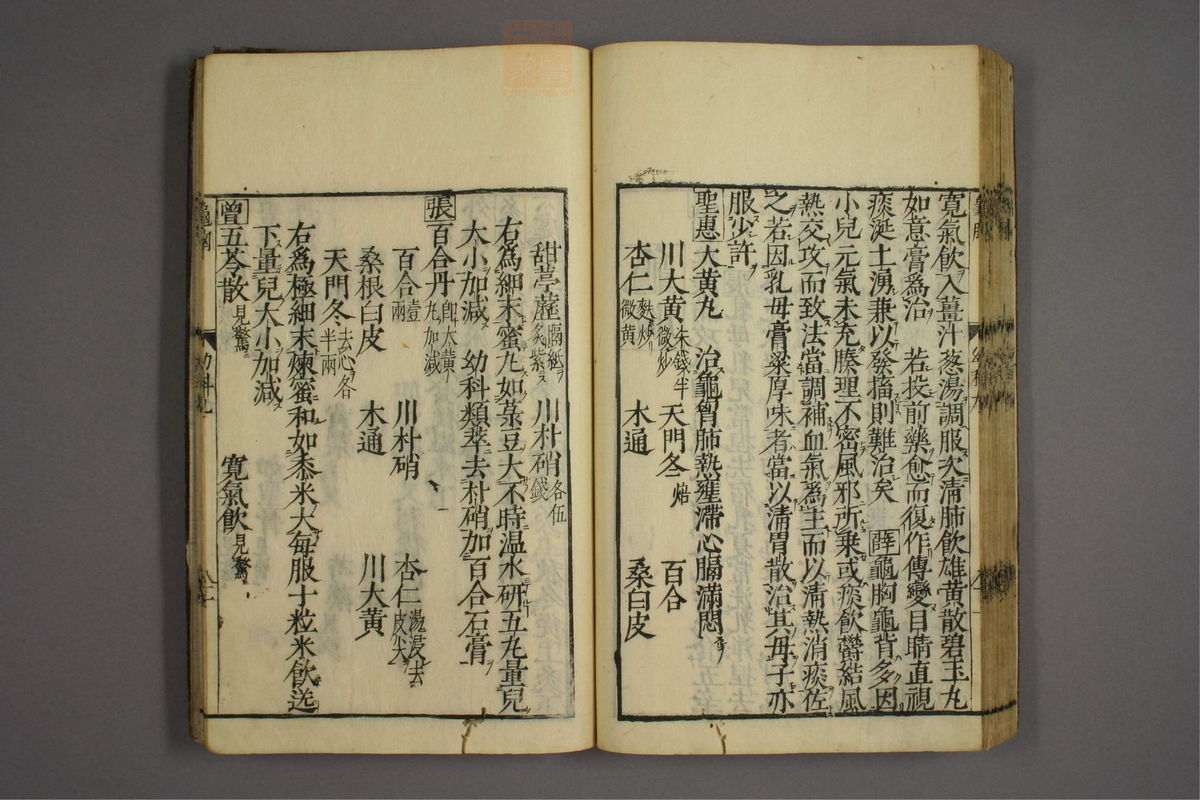 寛氣飲入薑汁葱湯調服次淸肺飲雄黃散碧玉丸
如意膏爲治　若投前藥愈而復作傳變目睛直視
痰涎上湧兼以發搐則難治矣　薛龜胸龜背多因
小兒元氣未充腠理不密風邪所乗或痰飲鬱結風
熱交攻而致法當調補血氣爲主而以淸熱消痰佐
之若因乳母膏粱厚味者當以淸胃散治其母子亦
服少許
聖惠大黃丸　治龜胷肺熱壅滯心膈滿悶
川大黃朱錢半微炒　天門冬焙　百合
杏仁麩炒微黃　木通　桑白皮
甜葶藶隔紙炙紫　川朴硝各伍錢
右爲細末蜜丸如菉豆大不時温水研五丸量兒
大小加減　幼科類萃去朴硝加百合石膏
張百合丹卽大黃丸加減
百合壹兩　川朴硝　杏仁湯浸去皮尖
桑根白皮　木通　川大黃
天門冬去心各半兩
右爲極細末煉蜜和如黍米大每服十粒米飲送
下量兒大小加減
曾五苓散見驚　寛氣飲見驚